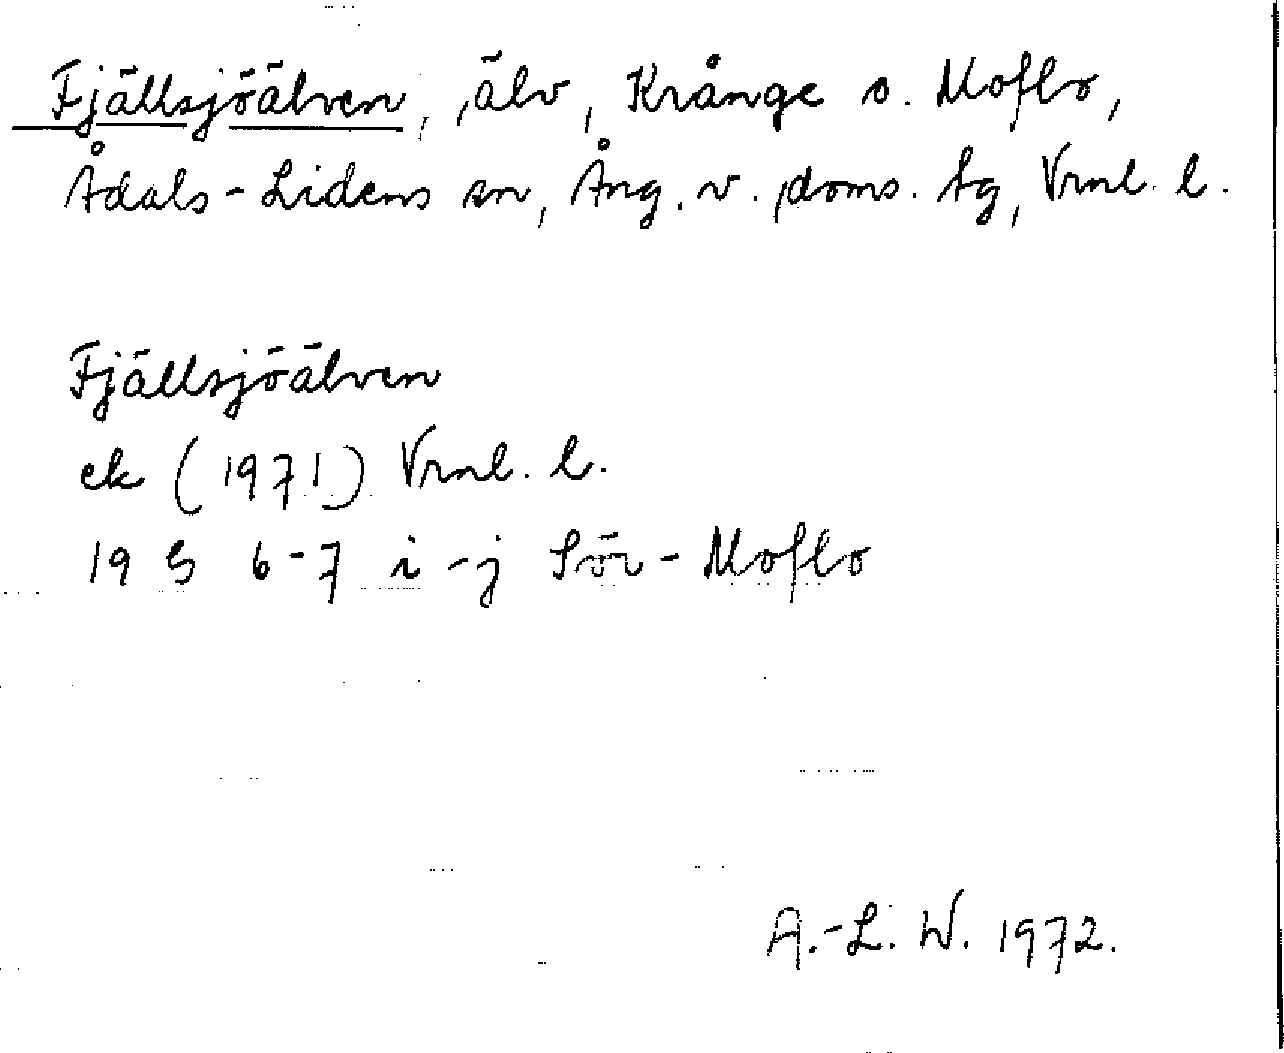 Fjällsjöälven, älv, Krånge o. Moflo,
Ådals-Lidens sn, Ång. v. doms. tg, Vrnl. l.
Fjällsjöälven
ek (1971) Vrnl. l.
19 G 6-7 i-j Sör-Moflo
A.-L. W. 1972.